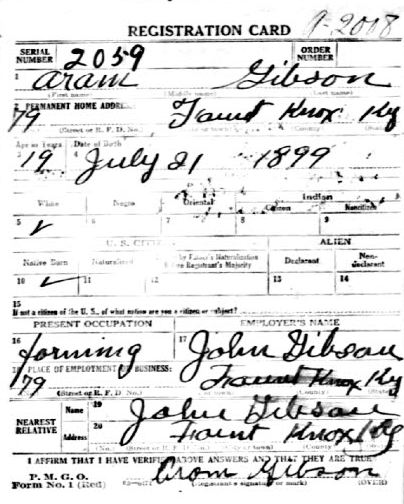 REGISTRATION CARD A-2018
SERIAL NUMBER 2059 ORDER NUMBER
1 Aram Gibson
(First name) (Middle name) (Last name)
2 PERMANENT HOME ADDRESS:
79 Faunt Knox Ky
(Street or R. F. D. No.) (County) (State)
Age in Years Date of Birth
3 19 4 July 21 1899
White Negro Oriental Indian
Citizen Noncitizen
5 ✓ 6 7 8 9
U. S. CITIZEN ALIEN
Native Born Naturalized by Father's Naturalization Before Registrant's Majority Declarant Non-declarant
10 ✓ 11 12 13 14
15
If not a citizen of the U. S., of what nation are you a citizen or subject?
PRESENT OCCUPATION EMPLOYER'S NAME
16 forming 17 John Gibson
18 PLACE OF EMPLOYMENT OR BUSINESS:
79 Faunt Knox Ky
(Street or R. F. D. No.) (County) (State)
NEAREST RELATIVE
Name 19 John Gibson
Address 20 Faunt Knox Ky
(No.) (Street or R. F. D. No.) (City or town) (County) (State)
I AFFIRM THAT I HAVE VERIFIED ABOVE ANSWERS AND THAT THEY ARE TRUE
P. M. G. O.
Form No. 1 (Red) Arom Gibson
(Registrant's signature or mark) (OVER)